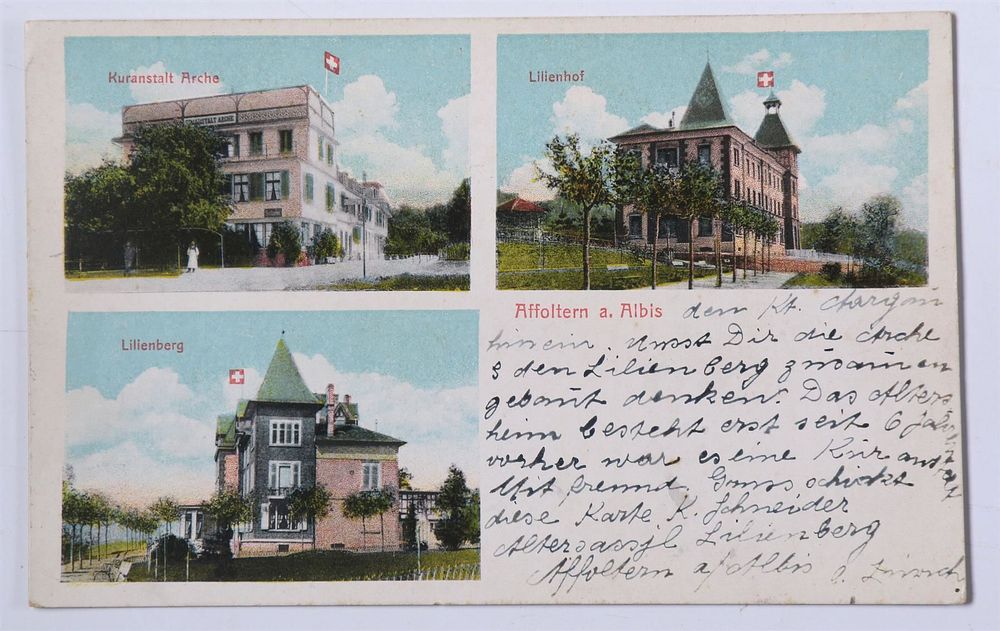 Kuranstalt Arche
KURANSTALT ARCHE
Lilienhof
Lilienberg
Affoltern a. Albis
den Kt. Aargau
hinein. Musst Dir die Arche
& den Lilienberg zusamen
gebaut denken. Das Alters
heim besteht erst seit 6 Jahr
vorher war es eine Kur
Mit freund, Gruss schickt
diese Karte K. Schneider
Altersassyl Lilienberg
Affoltern a/Albis